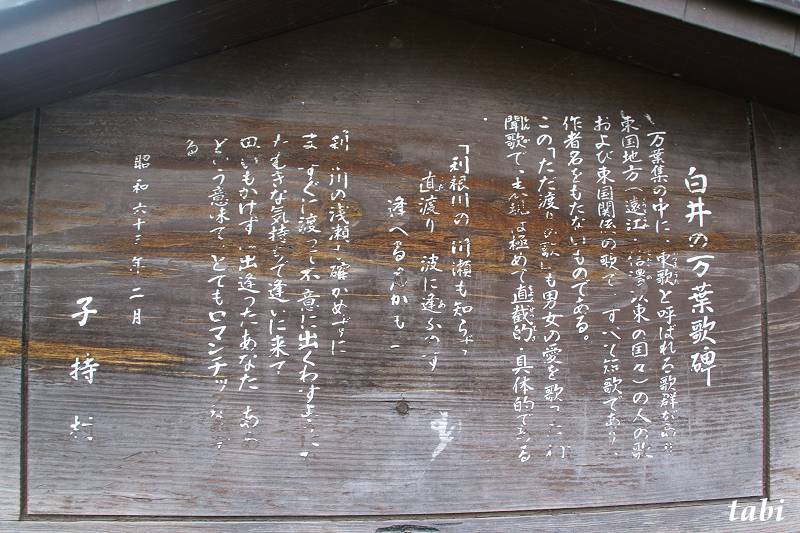 白井の万葉歌碑
万葉集の中に、東歌と呼ばれる歌群があ
東国地方(遠江、信濃以東の国々)の人の歌
および東国関係の歌で、すべて短歌であり、
作者名をもたないものである。
この「ただ渡り の歌」も男女の愛を歌った
聞歌で、 は極めて直裁的、具体的である
「利根川の 川瀬も知らず
直渡り 波に逢ふ す
逢へる かも
利 川の浅瀬も確かめずに
ま すぐに渡って不意に出くわすように
たむきな気持ちで逢いに来て
思いもかけずに出逢ったあなた
という意味で、とてもロマンチック
る
昭和六十三年二月
子持
tabi